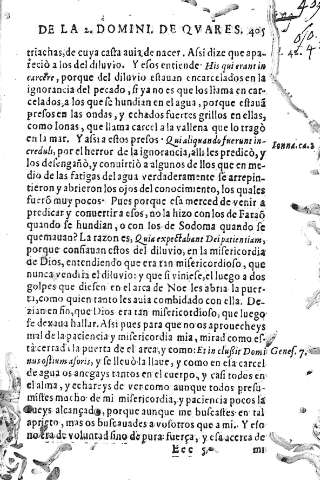 DE LA 2. DOMINI. DE QVARES. 405
triachas, de cuya casta auia de nacer. Assi dize que apa-
reciò a los del diluvio. Y esos entiende· His qui erant in
carcere, porque del diluvio estauan encarcelados en la
ignorancia del pecado, si ya no es que los llama en car-
celados, a los que se hundian en el agua, porque estauã
presos en las ondas, y echados fuertes grillos en ellas,
como Ionas, que llama carcel a la vallena que lo tragò
en la mar. Y assi a estos presos· Qui aliquando fuerunt in-
Ionna. ca. 2
creduli, por el horror de la ignorancia, alli les predicò, y
los desengañò, y conuirtiò a algunos de llos que en me-
dio de las fatigas del agua verdaderamente se arrepin-
tieron y abrieron los ojos del conocimiento, los quales
fuerõ muy pocos· Pues porque esa merced de venir a
predicar y convertir a esos, no la hizo con los de Faraõ
quando se hundian, o con los de Sodoma quando se
quemauan? La razon es, Quia expectabant Dei patientiam,
porque confiauan estos del diluvio, en la misericordia
de Dios, entendiendo que era tan misericordioso, que
nunca vendria el diluvio: y que si viniese, el luego a dos
golpes que diesen en el arca de Noe les abria la puer-
ta, como quien tanto les auia combidado con ella. De-
zian en fin, que Dios era tan misericordioso, que luego
se dexaua hallar. Assi pues para que no os aprouecheys
mal de la paciencia y misericordia mia, mirad como es-
tà cerrada la puerta de el arca, y como: Et inclusit Domi
Genes. 7.
nus ostium a foris, y se lleuò la llaue, y como en esa carcel
de agua os anegays tantos en el cuerpo, y casi todos en
el alma, y echareys de ver como aunque todos presu-
mistes mucho de mi misericordia, y paciencia pocos la
aueys alcançado, porque aunque me buscastes en tal
aprieto, mas os buscauades a vosotros que a mi. Y eso
no era de voluntad sino de pura fuerça, y esa acerca de
Eee 5. mi